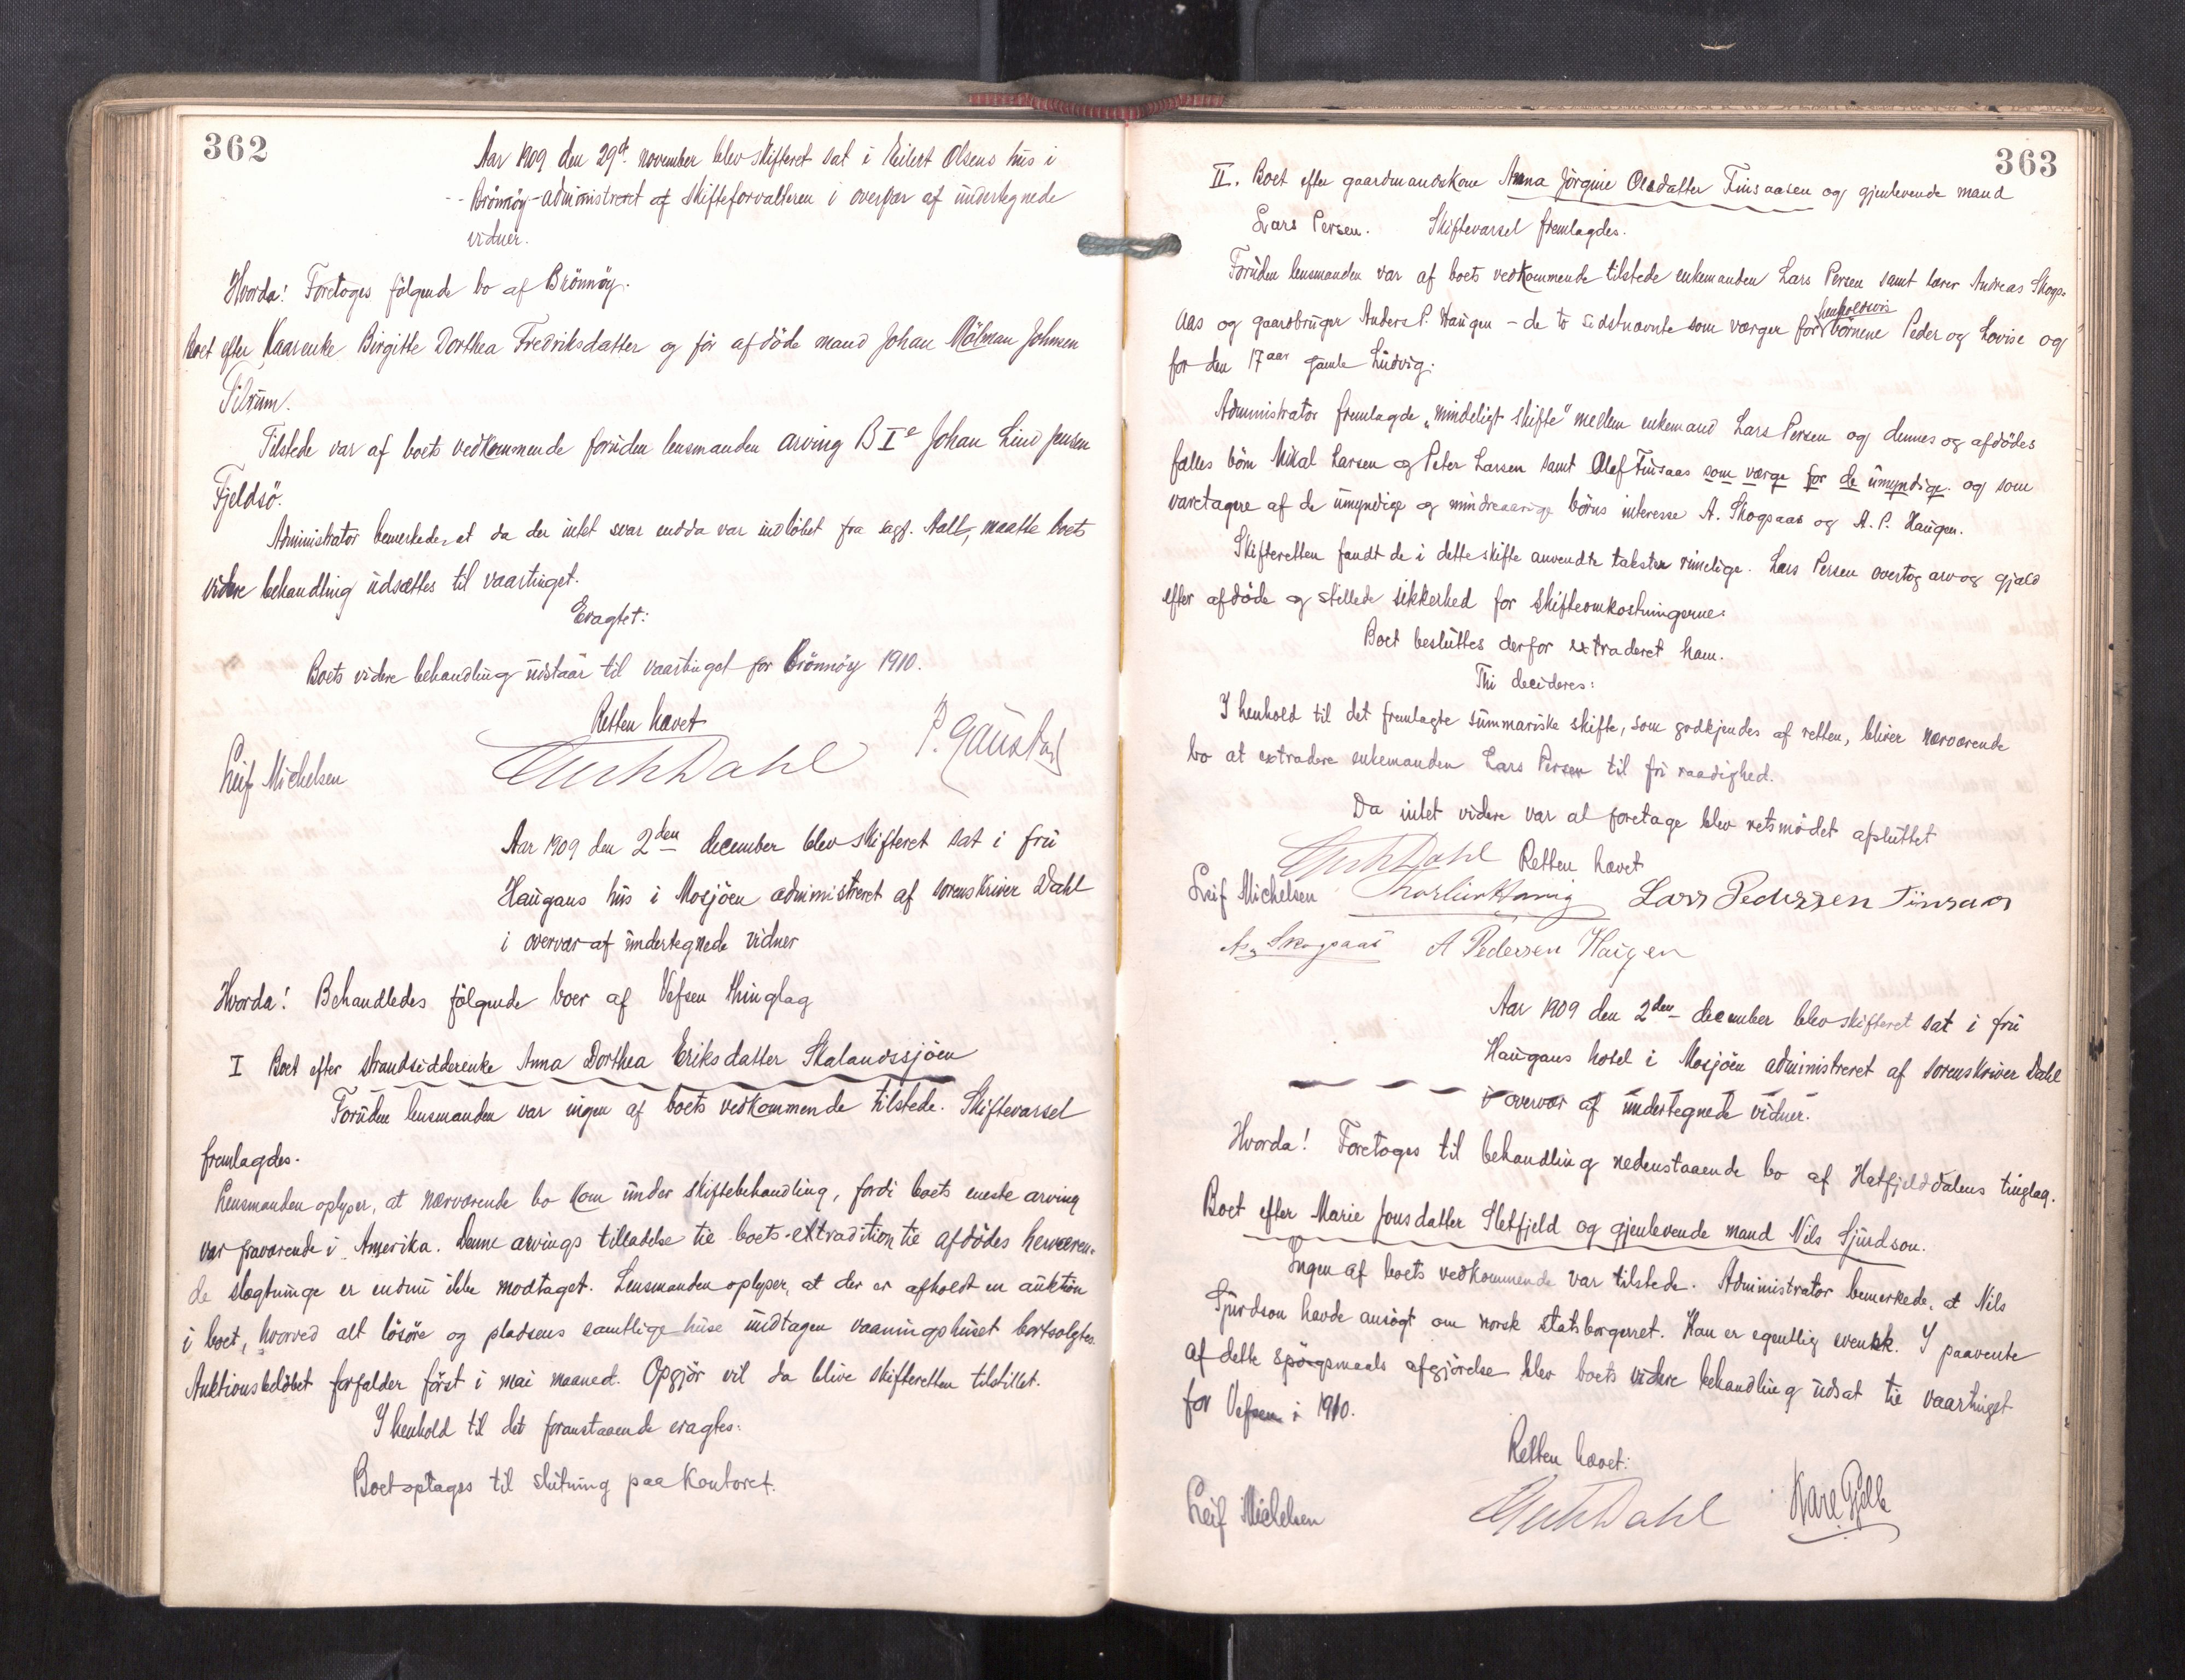 362
Aar 1909 den 29de november blev skifteret sat i Eilert Olsens hus i
Brönnöy administreret af skifteforvalteren i overvær af undertegnede
vidner.
Hvorda! Foretoges fölgende bo af Brönnöy.
Boet efter Kaarenke Birgitte Dorthea Fredriksdatter og för afdöde mand Johan Mölman Johnsen
Tilrum.
Tilstede var af boets vedkommende foruden lensmanden arving B I e Johan Lind Jensen
Fjeldsö.
Administrator bemerkede, at da der intet svar endda var indlöbet fra sagf. Aall, maatte boets
videre behandling udsættes til vaartinget.
Eragtet:
Boets videre behandling udstaar til vaartinget for Brönnöy 1910.
Retten hævet
Leif Michelsen Dahl P. Gaustad
Aar 1909 den 2den december blev skifteret sat i fru
Haugans hus i Mosjöen administreret af sorenskriver Dahl
i overvær af undertegnede vidner
Hvorda! Behandledes fölgende boer af Vefsen thinglag
I Boet efter strandsidderenke Anna Dorthea Eriksdatter Skalandssjöen
Foruden lensmanden var ingen af boets vedkommende tilstede. Skiftevarsel
fremlagdes.
Lensmanden oplyser, at nærværende bo kom under skiftebehandling, fordi boets eneste arving
var fraværende i Amerika. Denne arvings tilladelse til boets extradition til afdödes herværen-
de slægtninge er endnu ikke modtaget. Lensmanden oplyser, at der er afholdt en auktion
i boet, hvorved alt lösöre og pladsens samtlige huse undtagen vaaningshuset bortsolgtes.
Auktionsbelöbet forfalder först i mai maaned. Opgjör vil da blive skifteretten tilstillet.
I henhold til det foranstaaende eragtes:
Boet optages til slutning paa kontoret.
363
II. Boet efter gaardmandskone Anna Jörgine Olsdatter Finsaasen og gjenlevende mand
Lars Persen. Skiftevarsel fremlagdes.
Foruden lensmanden var af boets vedkommende tilstede enkemanden Lars Persen samt lærer Andreas Skogs-
aas og gaardbruger Anders P. Haugen - de to sidstnævnte som værger for henholdsvis börnene Peder og Lovise og
for den 17 aar gamle Ludvig.
Administrator fremlagde "mindeligt skifte" mellem enkemand Lars Persen og dennes og afdödes
fælles börn Mikal Larsen og Peter Larsen samt Olef Finsaas som værge for de umyndige og som
varetagere af de umyndige og mindreaarige börns interesse A. Skogsaas og A. P. Haugen.
Skifteretten fandt de i dette skifte anvendte takster rimelige. Lars Persen overtog arv og gjæld
efter afdöde og stillede sikkerhed for skifteomkostningerne.
Boet besluttes derfor extraderet ham.
Thi decideres:
I henhold til det fremlagte summariske skifte, som godkjendes af retten, bliver nærværende
bo at extradere enkemanden Lars Persen til fri raadighed.
Da intet videre var at foretage blev retsmödet afsluttet
Dahl Retten hævet
Leif Michelsen Lars Pederssen Finsaas
A. Skogsaas A Pedersen Haugen
Aar 1909 den 2den december blev skifteret sat i fru
Haugans hotel i Mosjöen administreret af sorenskriver Dahl
i overvær af undertegnede vidner.
Hvorda! Foretoges til behandling nedenstaaende bo af Hatfjelddalens tinglag.
Boet efter Marie Jonsdatter Sletfjeld og gjenlevende mand Nils Sjurdson.
Ingen af boets vedkommende var tilstede. Administrator bemerkede, at Nils
Sjurdson havde ansögt om norsk statsborgerret. Han er egentlig svensk. I paavente
af dette spörgsmaals afgjörelse blev boets videre behandling udsat til vaartinget
for Vefsen i 1910.
Retten hævet:
Leif Michelsen Dahl